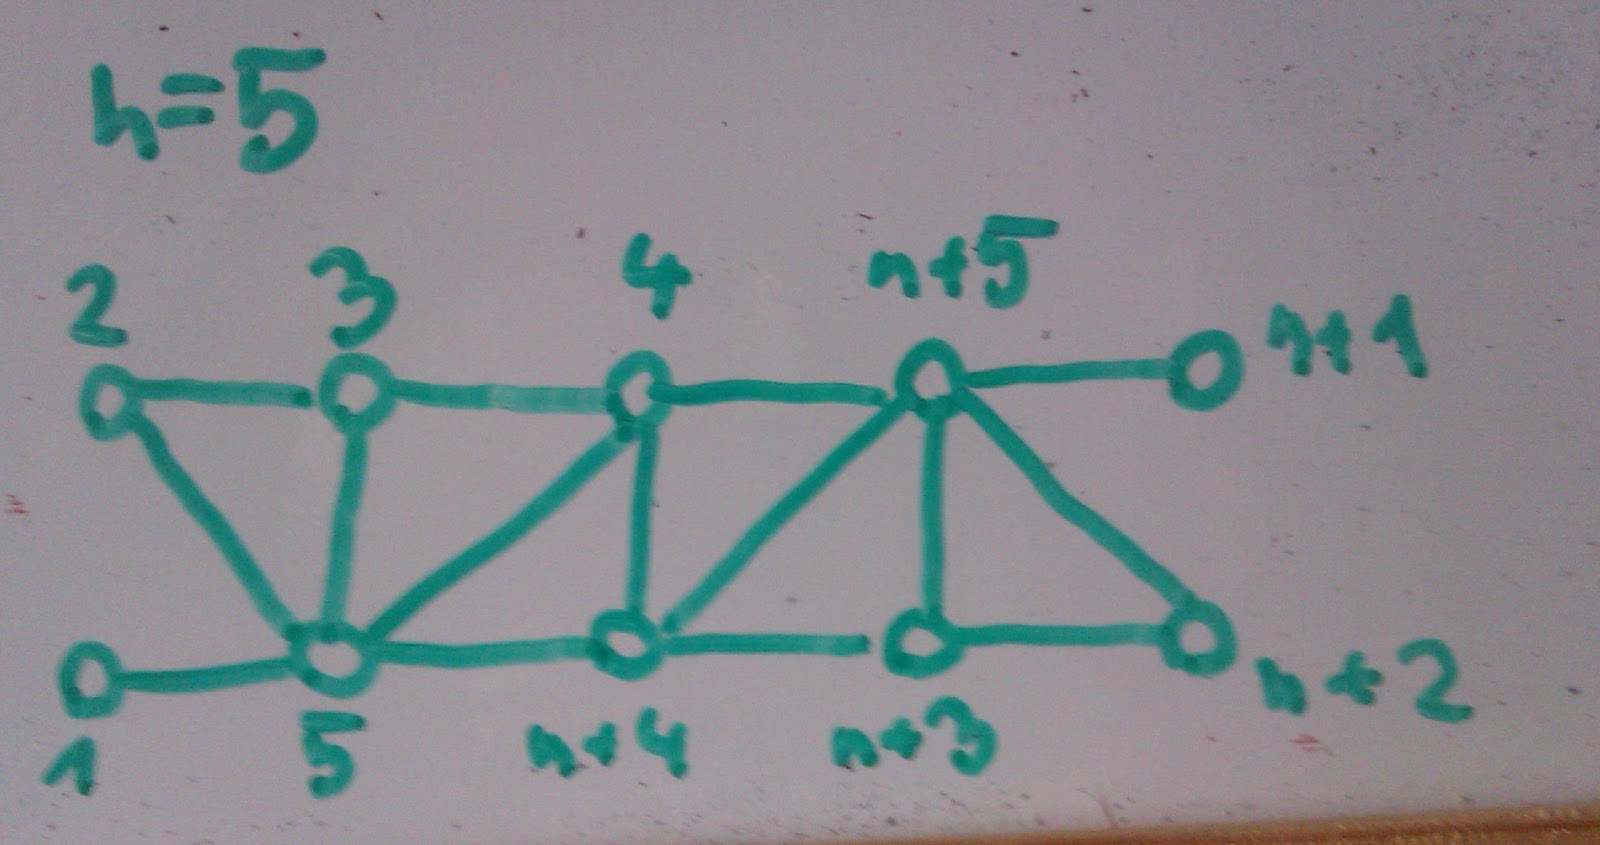 n=5
2 3 4 n+5 n+1
1 5 n+4 n+3 n+2